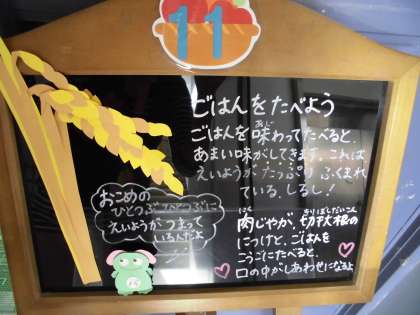 11
ごはんをたべよう
ごはんを味わってたべると、
あじ
あまい味がしてきます。これは
えいようが たっぷり ふくまれ
ている しるし!
おこめの
ひとつぶひとつぶに
えいようが つまって
いるんだよ
にく
きりぼしだいこん
肉じゃが、切干大根の
につけと、ごはんを
こうごにたべると、
口の中がしあわせになるよ